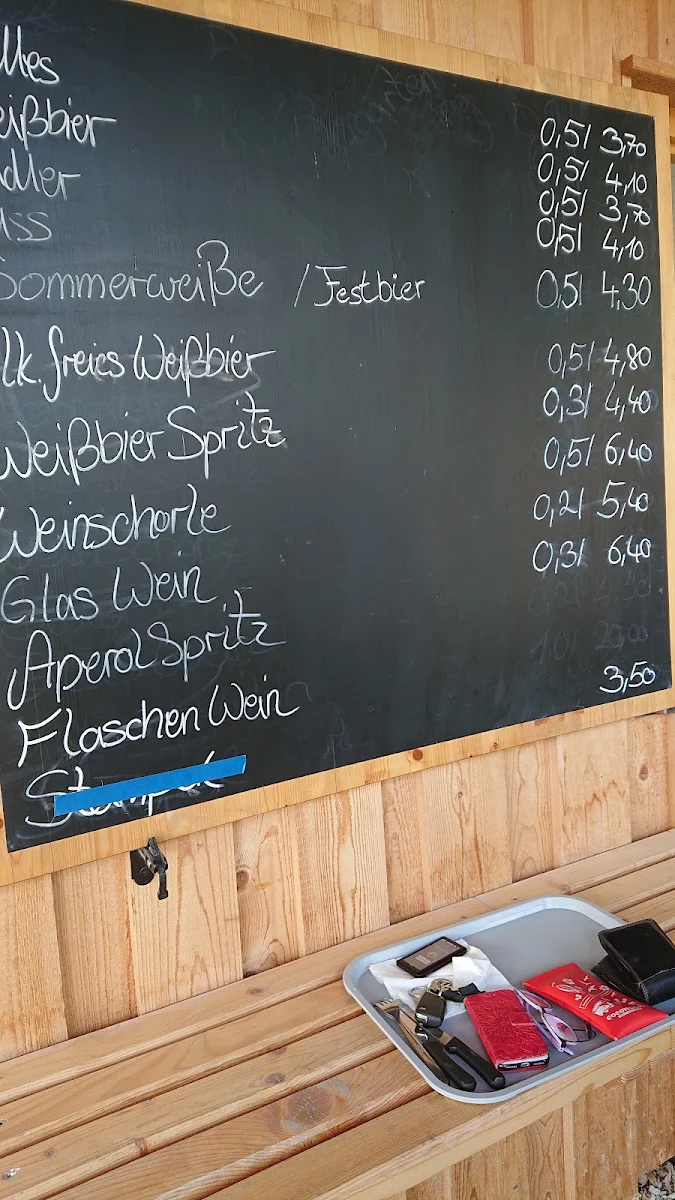 lles
eißbier 0,5l 3,70
dler 0,5l 4,10
uss 0,5l 3,70
0,5l 4,10
Sommerweiße / Festbier 0,5l 4,30
lk.freies Weißbier 0,5l 4,80
Weißbier Spritz 0,3l 4,40
Weinschorle 0,5l 6,40
Glas Wein 0,2l 5,40
Aperol Spritz 0,3l 6,40
Flaschen Wein
3,50